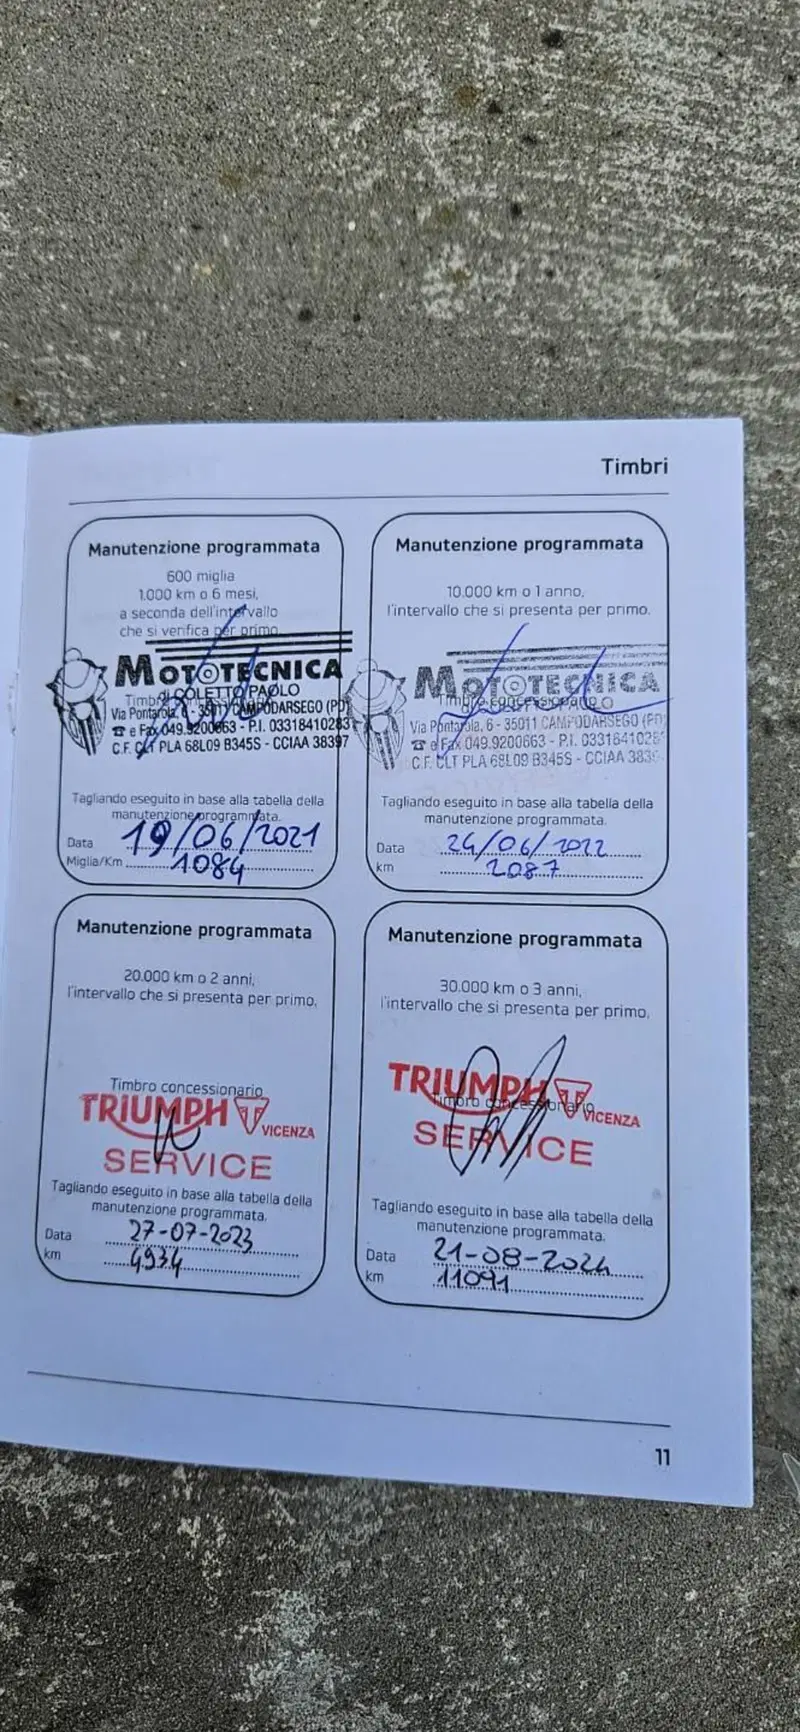 Timbri
Manutenzione programmata
600 miglia
1.000 km o 6 mesi,
a seconda dell'intervallo
che si verifica per primo.
MOTOTECNICA
di COLETTO PAOLO
Via Pontarola, 6 - 35011 CAMPODARSEGO (PD)
☎ e Fax 049.9200663 - P.I. 03318410283
C.F. CLT PLA 68L09 B345S - CCIAA 38397
Tagliando eseguito in base alla tabella della
manutenzione programmata.
Data 19/06/2021
Miglia/Km 1084
Manutenzione programmata
10.000 km o 1 anno,
l'intervallo che si presenta per primo.
MOTOTECNICA
Timbro concessionario
Via Pontarola, 6 - 35011 CAMPODARSEGO (PD)
☎ e Fax 049.9200663 - P.I. 0331841028
C.F. CLT PLA 68L09 B345S - CCIAA 3839
Tagliando eseguito in base alla tabella della
manutenzione programmata.
Data 24/06/2022
km 2087
Manutenzione programmata
20.000 km o 2 anni,
l'intervallo che si presenta per primo.
Timbro concessionario
TRIUMPH VICENZA
SERVICE
Tagliando eseguito in base alla tabella della
manutenzione programmata.
Data 27-07-2023
km 4934
Manutenzione programmata
30.000 km o 3 anni,
l'intervallo che si presenta per primo.
TRIUMPH VICENZA
Timbro concessionario
SERVICE
Tagliando eseguito in base alla tabella della
manutenzione programmata.
Data 21-08-2024
km 11091
11